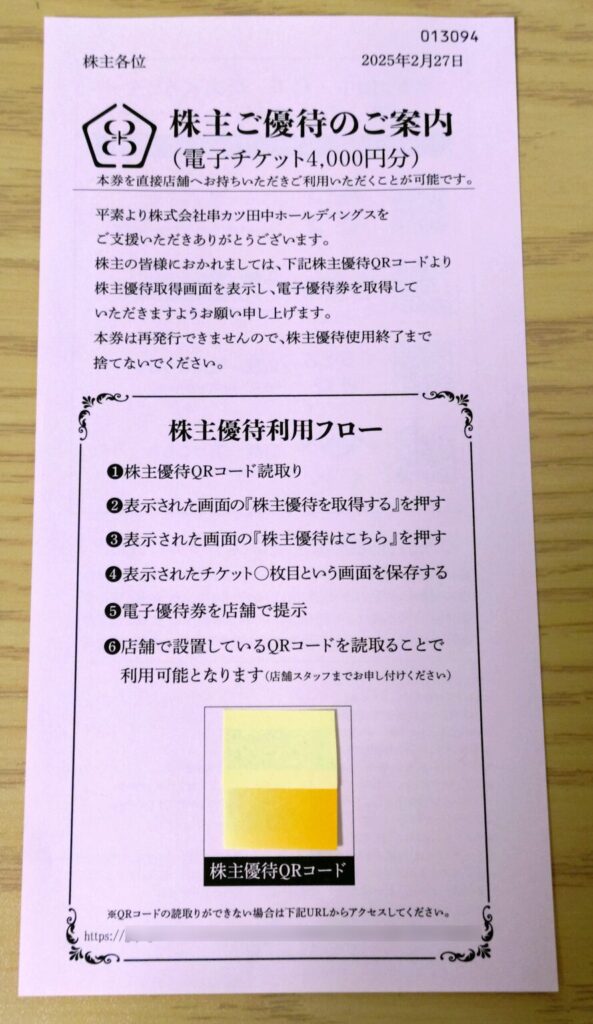 013094
株主各位
2025年2月27日
株主ご優待のご案内
(電子チケット4,000円分)
本券を直接店舗へお持ちいただきご利用いただくことが可能です。
平素より株式会社串カツ田中ホールディングスを
ご支援いただきありがとうございます。
株主の皆様におかれましては、下記株主優待QRコードより
株主優待取得画面を表示し、電子優待券を取得して
いただきますようお願い申し上げます。
本券は再発行できませんので、株主優待使用終了まで
捨てないでください。
株主優待利用フロー
❶株主優待QRコード読取り
❷表示された画面の『株主優待を取得する』を押す
❸表示された画面の『株主優待はこちら』を押す
❹表示されたチケット〇枚目という画面を保存する
❺電子優待券を店舗で提示
❻店舗で設置しているQRコードを読取ることで
利用可能となります(店舗スタッフまでお申し付けください)
株主優待QRコード
※QRコードの読取りができない場合は下記URLからアクセスしてください。
https://